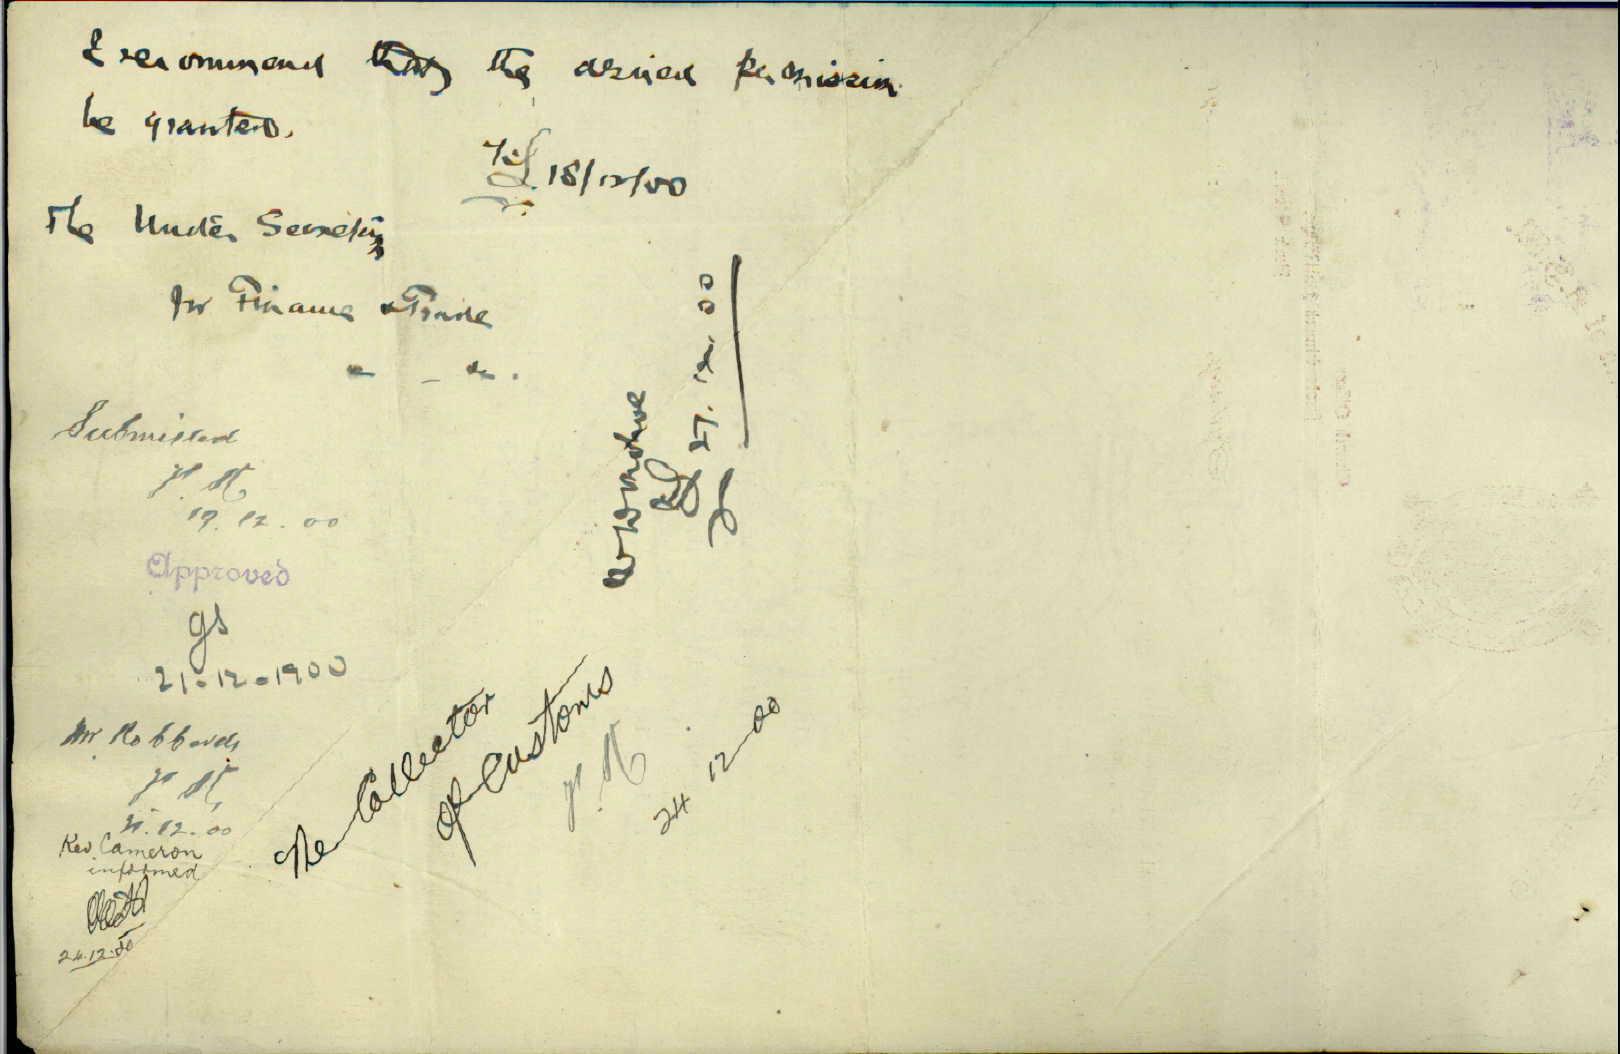 I recommend that the desired permission
be granted.
18/12/00
The Under Secretary
for Finance & Trade
Submitted
19.12.00
Approved
gs
21-12-1900
Mr Robbards
21.12.00
Rev. Cameron
informed
24.12.00
The Collector
of Customs
24 12-00
27.12.00